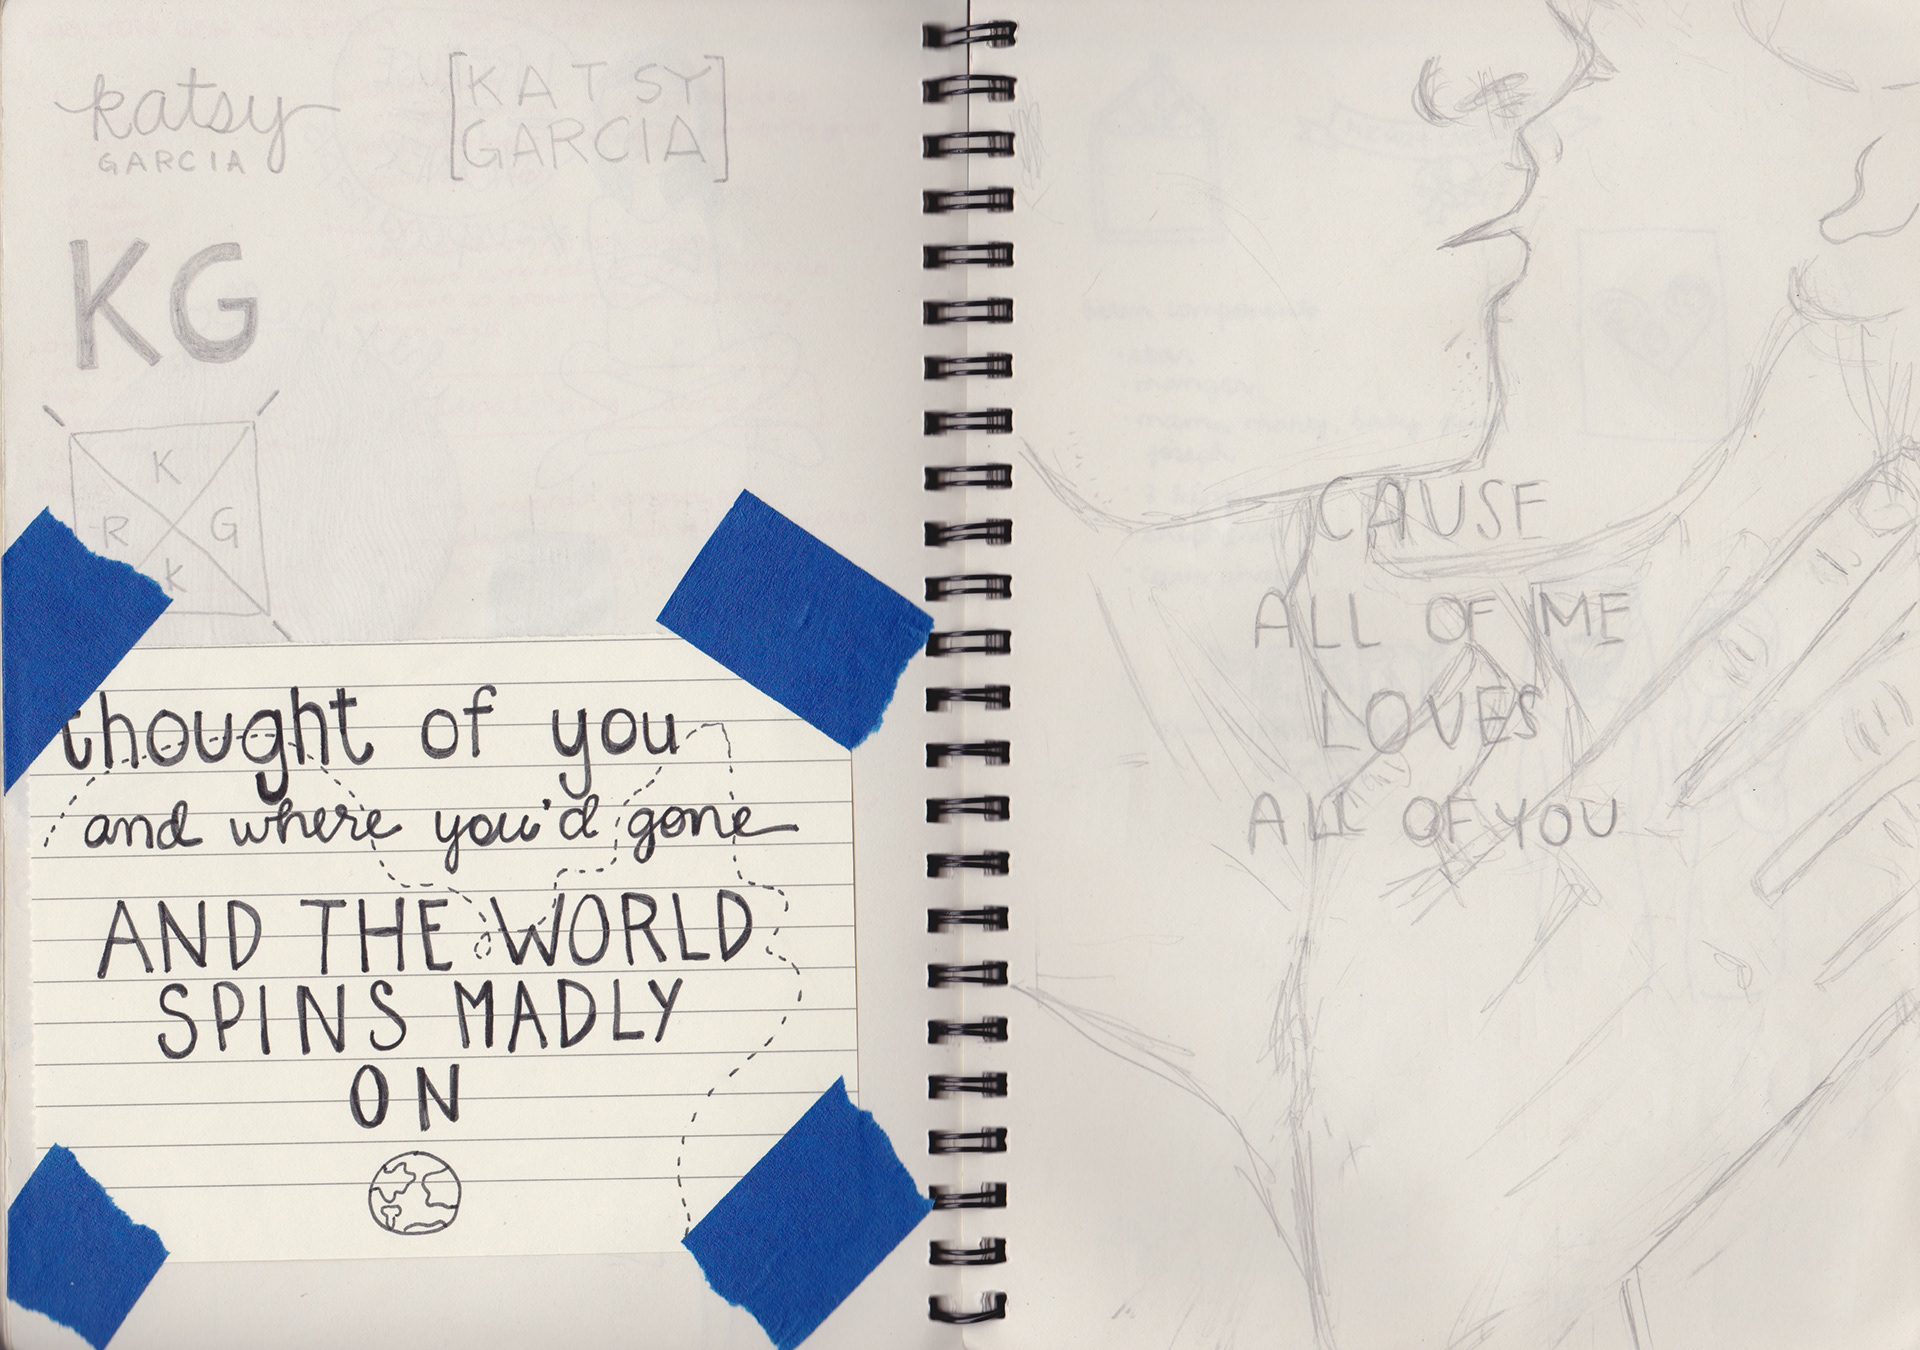 katsy
GARCIA
[KATSY
GARCIA]
KG
K
R G
K
thought of you
and where you'd gone
AND THE WORLD
SPINS MADLY
ON
CAUSE
ALL OF ME
LOVES
ALL OF YOU